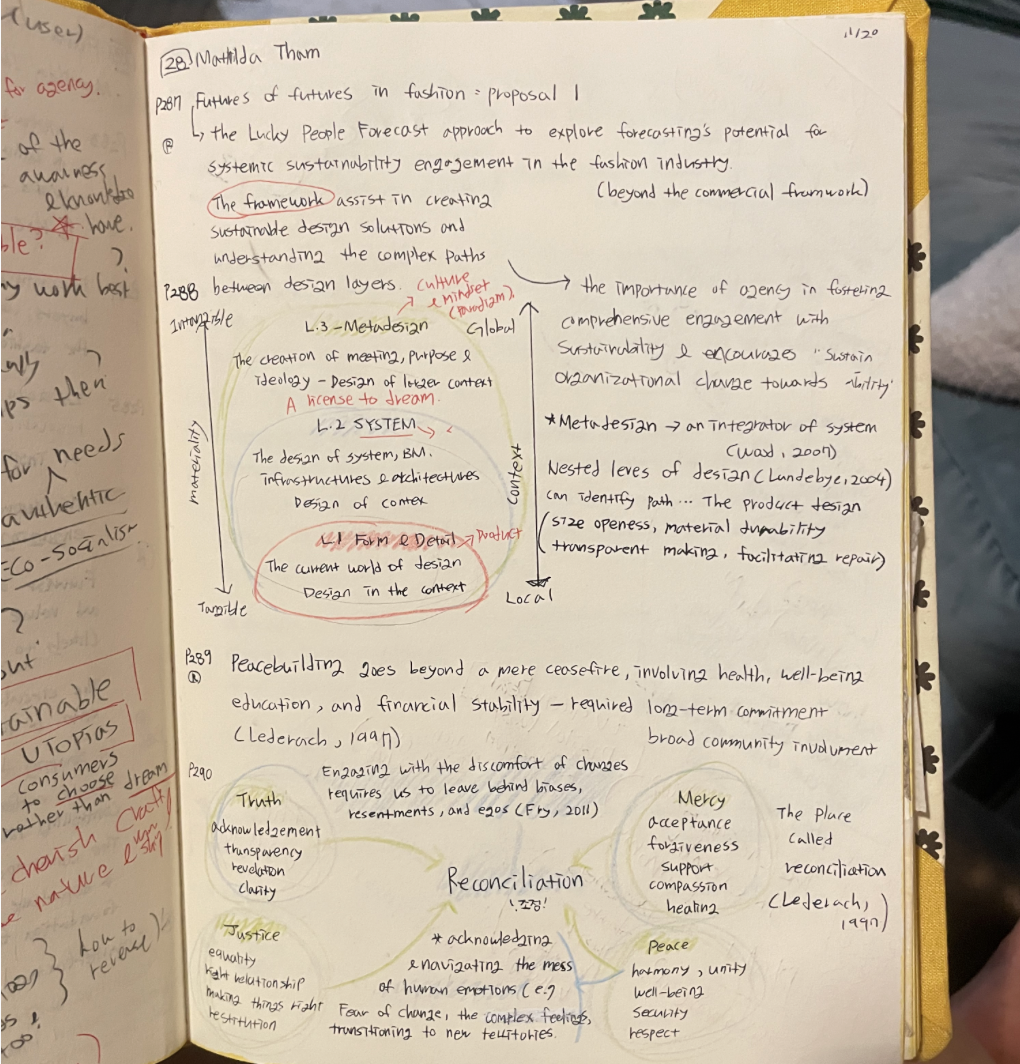 (user)
for agency.
of the
awarness
&knowledge
have.
ble?
?
my work best
?
ps then
for needs
authentic
Eco-socialism
?
ainable
Utopias
consumers
to choose dream
rather than
cherish
nature &
how to
reverse)
11/20
28) Mathilda Tham
P287 Futures of futures in fashion : proposal 1
↳ the Lucky People Forecast approach to explore forecasting's potential for
systemic sustainability engagement in the fashion industry.
(beyond the commercial framwork)
The framework assist in creating
sustainable design solutions and
understanding the complex paths
P288 between design layers.
→ the importance of agency in fostering
comprehensive engagement with
Sustainability & encourages "sustain
organizational change towards -ability.
culture
& mindset
(paradigm).
Intangible
materiality
Tangible
L.3 - Metadesign
Global
The creation of meeting, purpose &
ideology - Design of larger context
A license to dream.
L.2 SYSTEM
The design of system, BM.
infrastructures & architectures
Design of contex
L1 Form & Detail → Product
The current world of design
Design in the context
context
Local
*Metadesign → an integrator of system
(Wood, 2007)
Nested leves of design (Lundebye, 2004)
can identify path... The product design
(size openess, material durability
transparent making, facilitating repair)
P289 Peacebuilding goes beyond a mere ceasefire, involving health, well-being
education, and financial stability - required long-term commitment
(Lederach, 1997) broad community involument
P290
Engaging with the discomfort of changes
requires us to leave behind biases,
resentments, and egos (Fry, 2011)
Truth
acknowledgement
transparency
revelation
clarity
Mercy
acceptance
forgiveness
support
compassion
healing
The Place
called
reconciliation
(Lederach,
1997)
Reconciliation
!조정!
Justice
equality
right relationship
making things right
restitution
* acknowledging
& navigating the mess
of human emotions (e.g
Fear of change, the complex feelings,
transitioning to new territories.
Peace
harmony, unity
well-being
security
respect